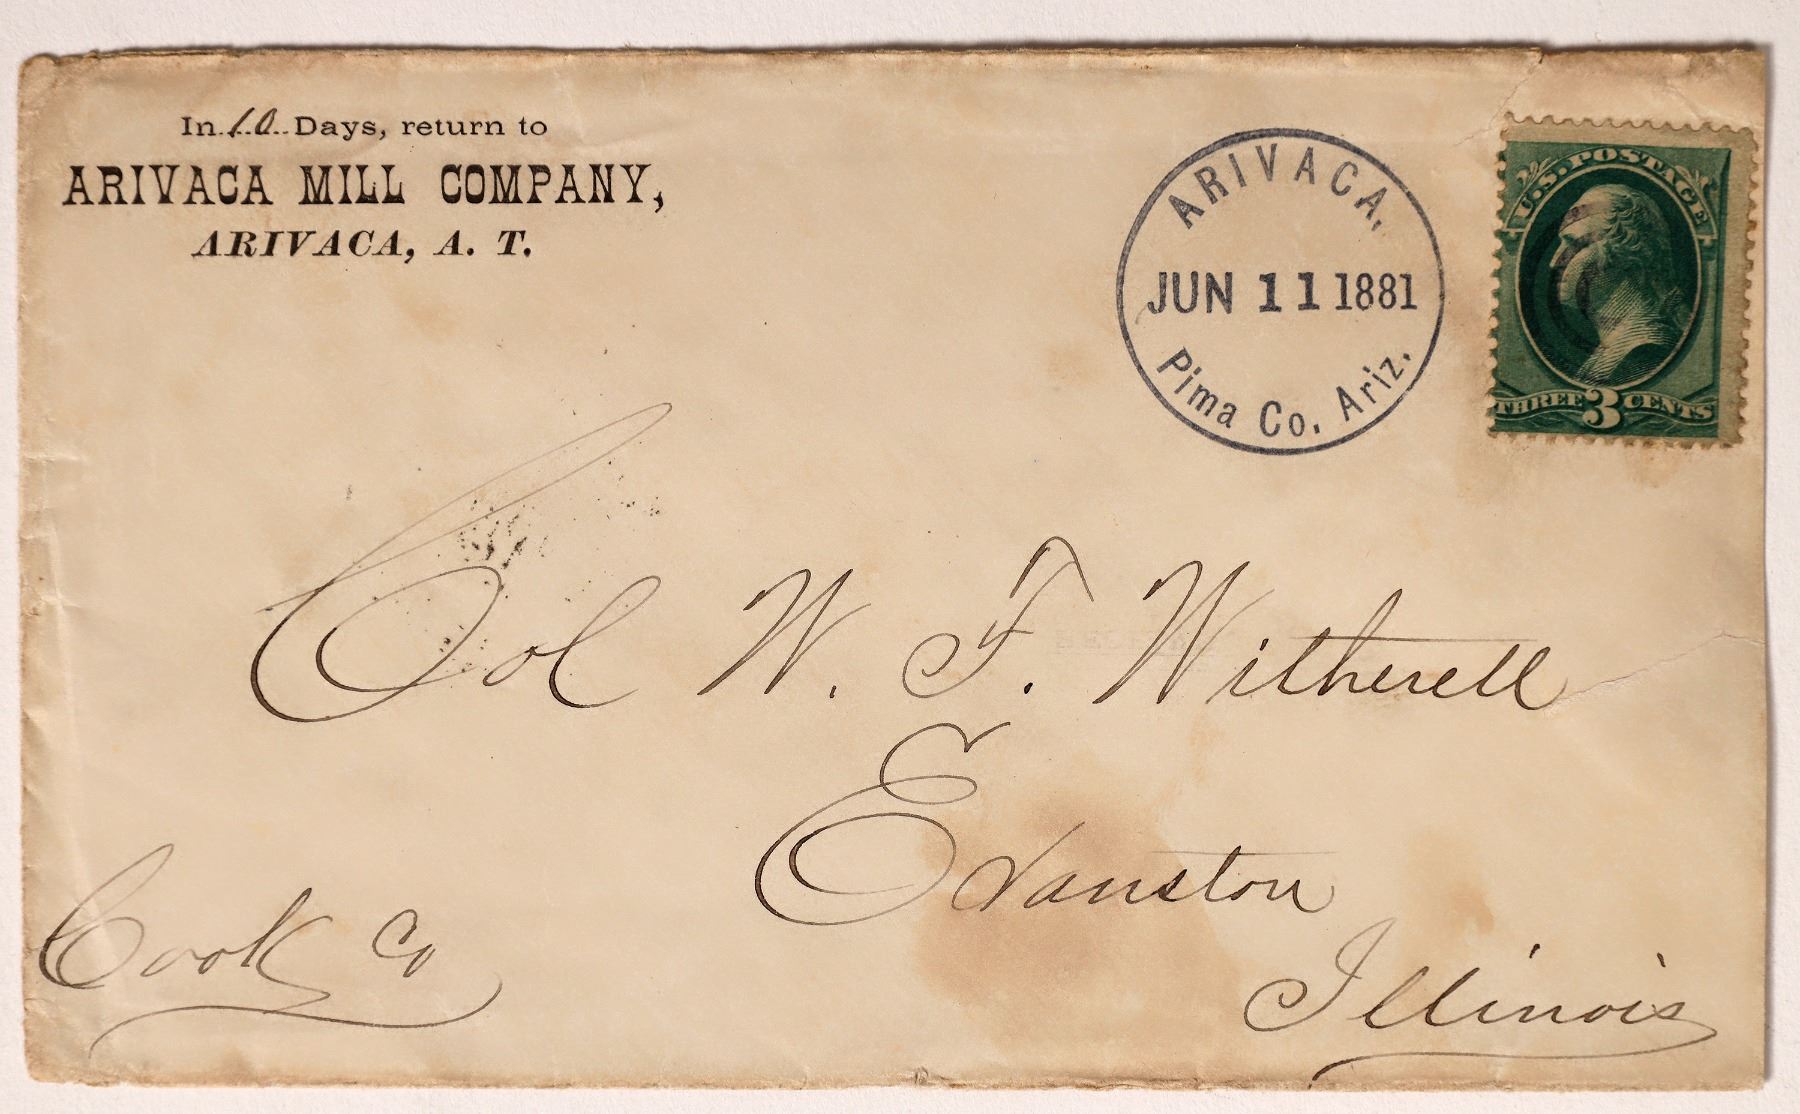 In 10 Days, return to
ARIVACA MILL COMPANY,
ARIVACA, A. T.
ARIVACA.
JUN 11 1881
Pima Co. Ariz.
U.S. POSTAGE
THREE 3 CENTS
Col W. F. Witherell
Evanston
Cook Co
Illinois